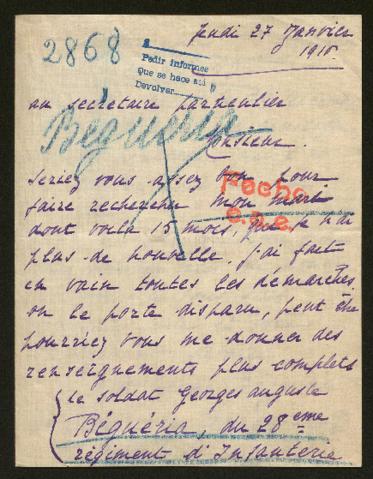 2868
Pedir informes
Que se hace así
Devolver
Jeudi 27 Janvier
191
au secrétaire particulier
Béguéria
Monsieur.
Seriez vous assez bon pour
faire rechercher mon mari
Fecho
dont voila 15 mois, que je n'ai
plus de nouvelle. j'ai fait
en vain toutes les démarches.
on le porte disparu, peut être
pourriez vous me donner des
renseignements plus complets
le soldat Georges Auguste
Béguéria, du 28eme
régiment d'Infanterie